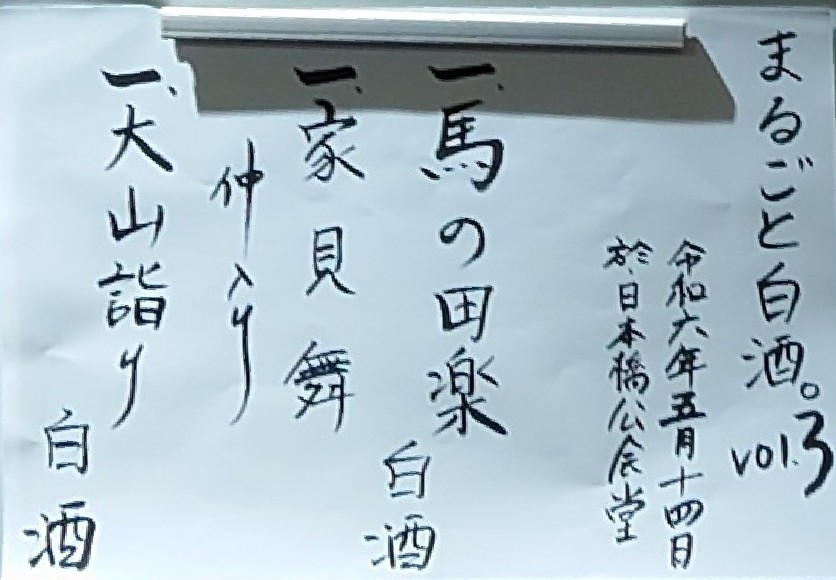 まるごと白酒。vol.3
令和六年五月十四日
於日本橋公会堂
一、馬の田楽
白酒
一、家見舞
仲入り
一、大山詣り
白酒